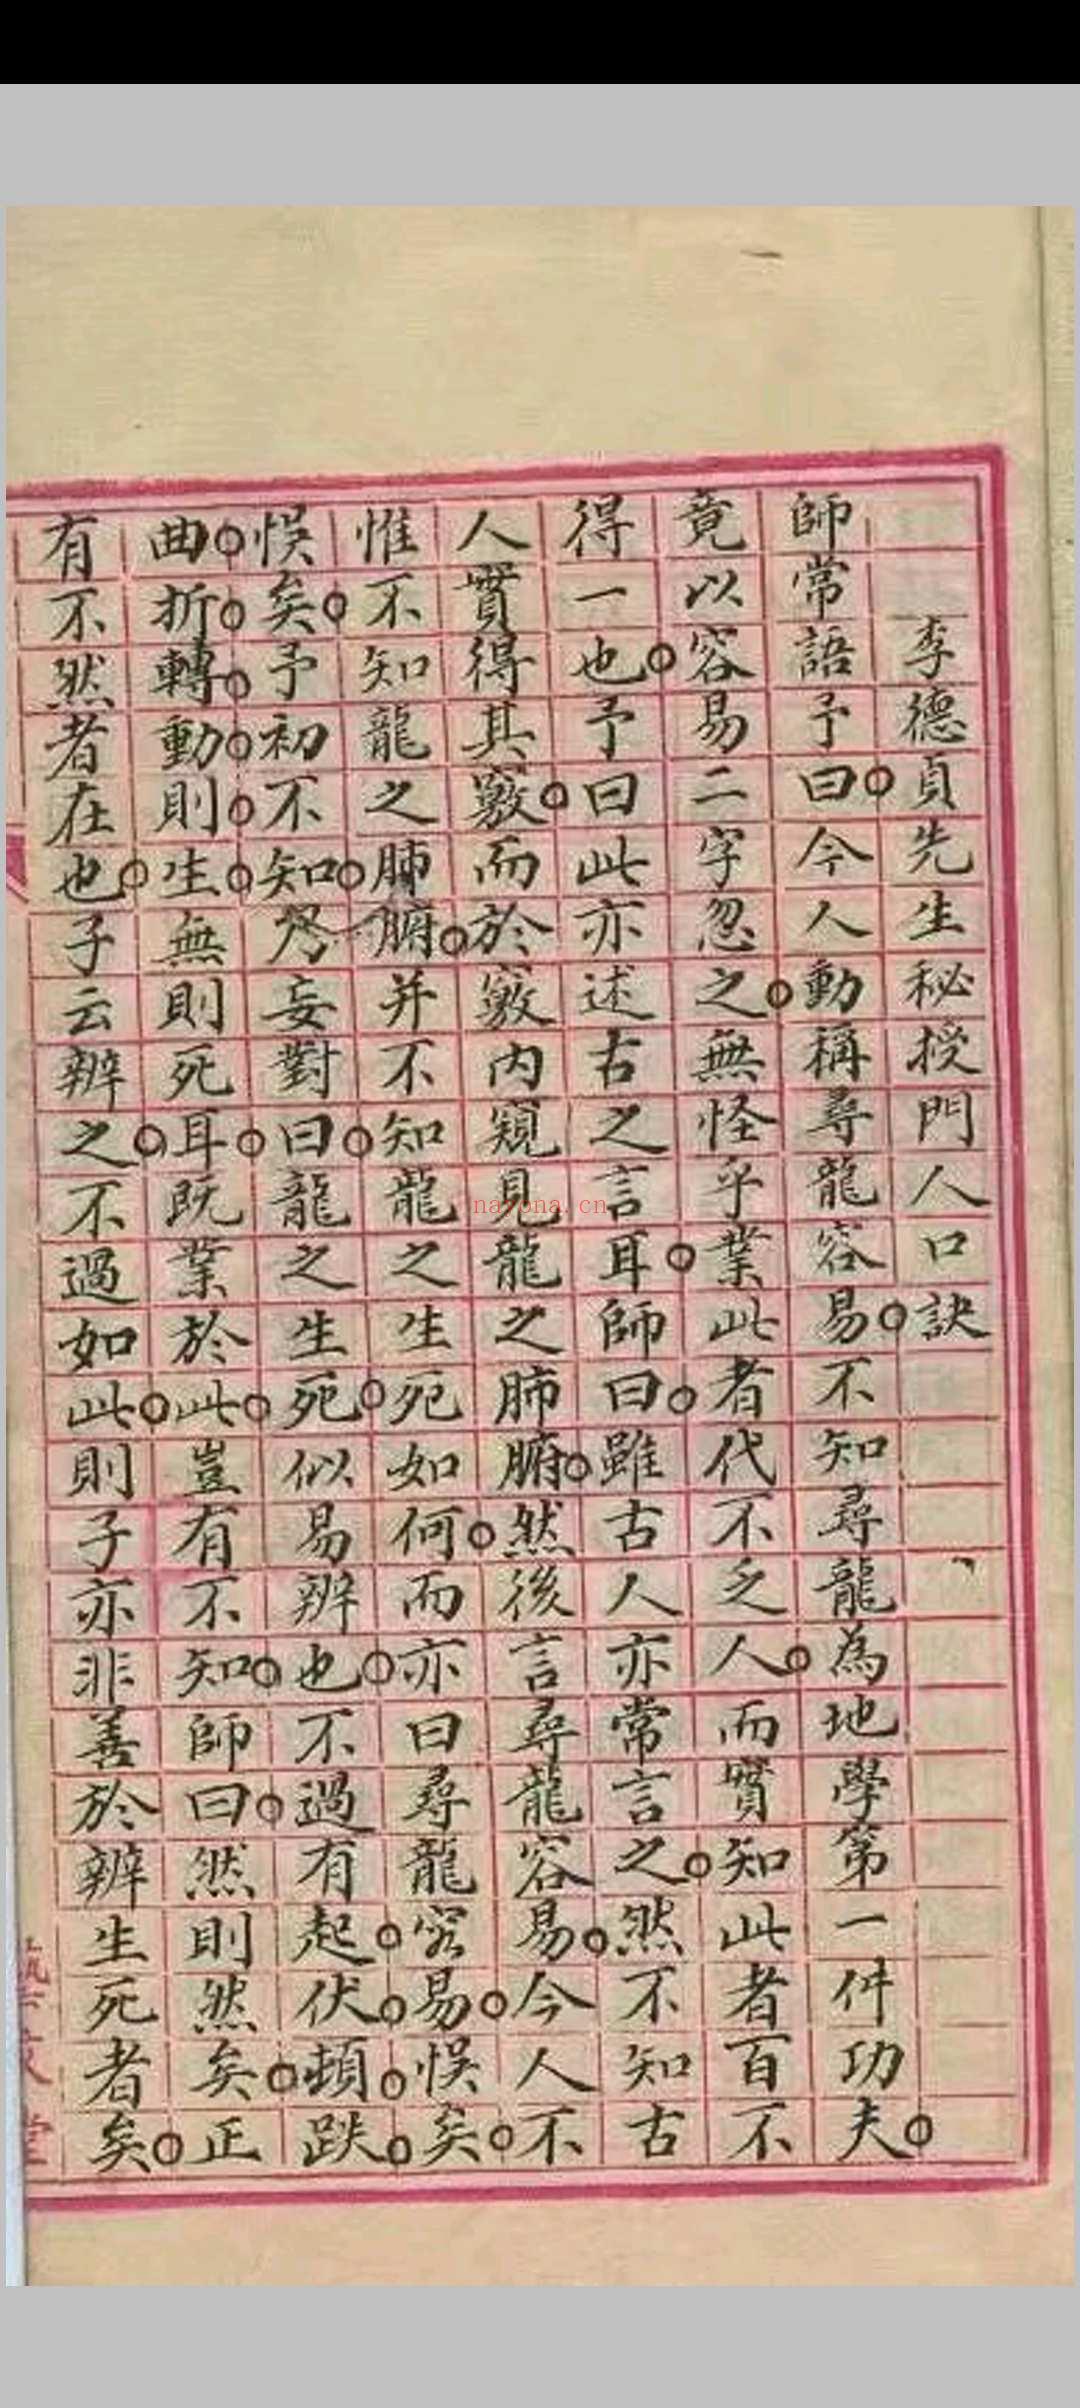 李德貞先生秘授門人口訣
師常語予曰今人動稱尋龍容易不知尋龍為地學第一件功夫
竟以容易二字忽之無怪乎業此者代不乏人而實知此者百不
得一也予曰此亦述古之言耳師曰雖古人亦常言之然不知古
人實得其竅而於竅內窺見龍之肺腑然後言尋龍容易今人不
惟不知龍之肺腑并不知龍之生死如何而亦曰尋龍容易悞矣
悞矣予初不知乃妄對曰龍之生死似易辨也不過有起伏頓跌
曲折轉動則生無則死耳既業於此豈有不知師曰然則然矣正
有不然者在也子云辨之不過如此則子亦非善於辨生死者矣
nayona.cn